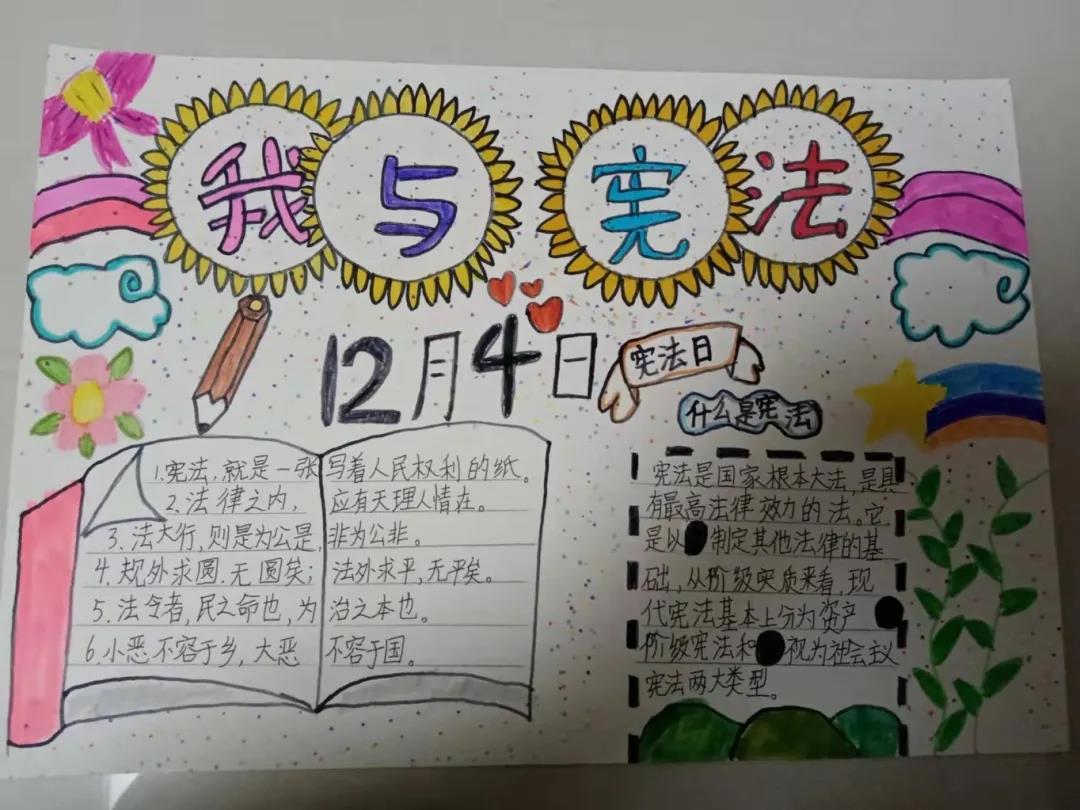 我与宪法
12月4日
宪法日
什么是宪法
1.宪法,就是一张写着人民权利的纸。
2.法律之内,应有天理人情在。
3.法大行,则是为公是,非为公非。
4.规外求圆,无圆矣;法外求平,无平矣。
5.法令者,民之命也,为治之本也。
6.小恶不容于乡,大恶不容于国。
宪法是国家根本大法,是具
有最高法律效力的法。它
是以制定其他法律的基
础,从阶级实质来看,现
代宪法基本上分为资产
阶级宪法和视为社会主义
宪法两大类型。